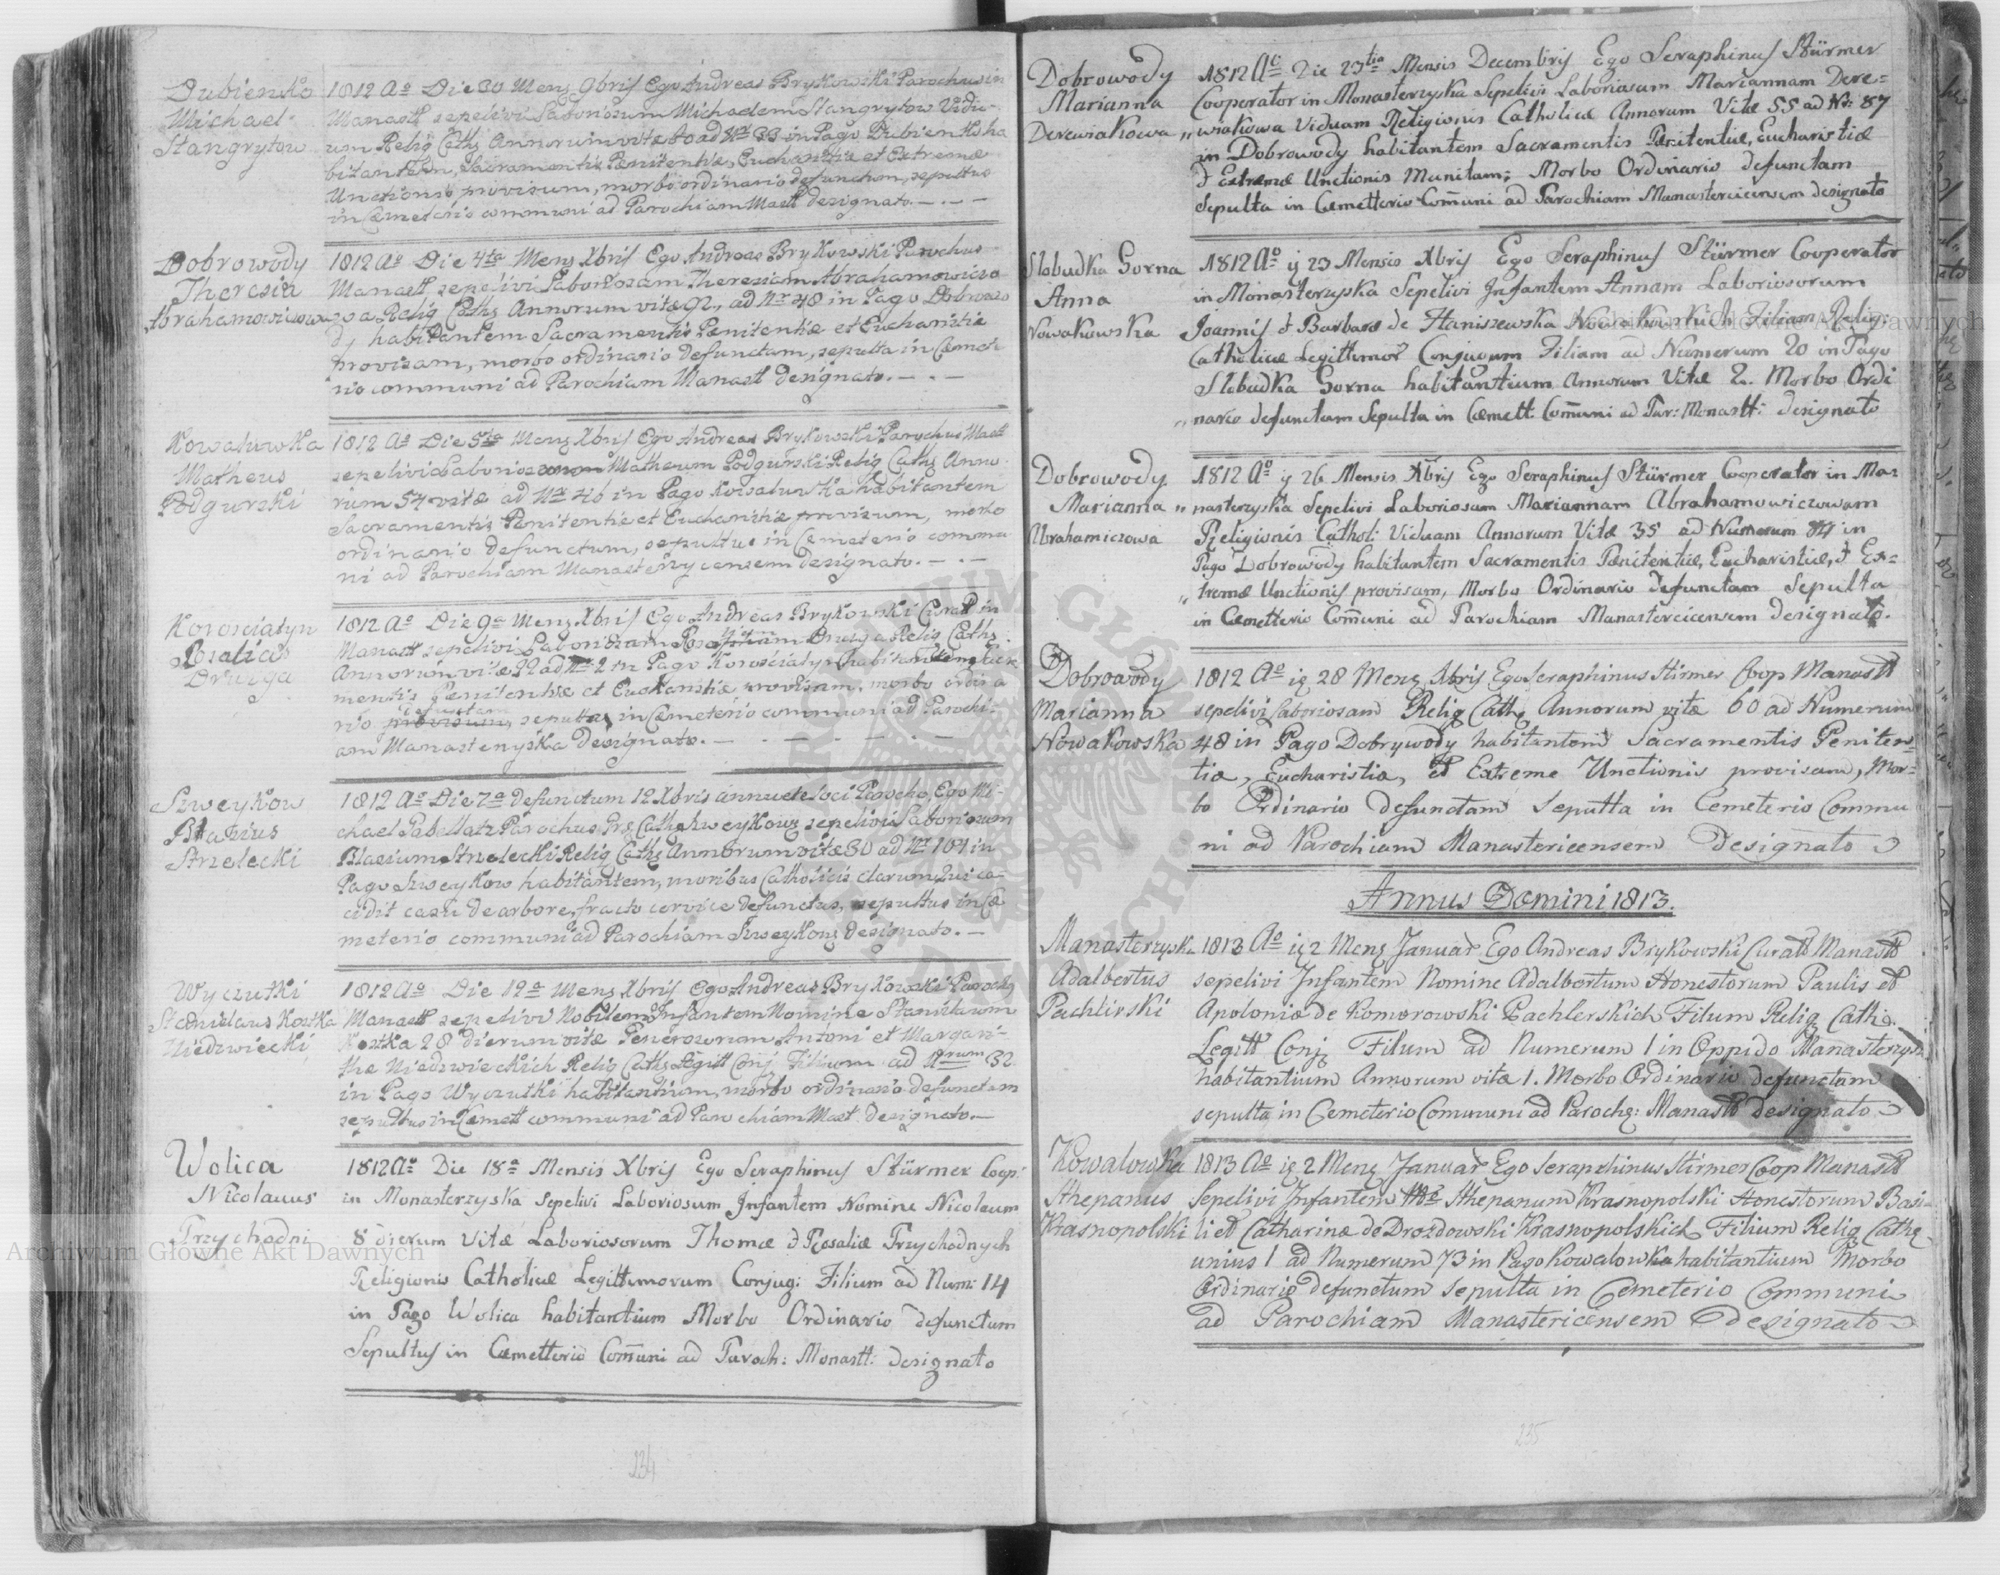 Dubienko
Michael
Stangrytow
1812 Aº Die 30 Menʒ 9bris Ego Andreas Brykowski Parochus in
Manastt sepelivi Laboriosum Michaelem Stangrytow Vidu-
um Relig Cathʒ Annorum vitæ 60 ad Nr 33 in Pago Dubienko ha
bitantem, Sacramentis Penitentiæ, Eucharistiæ et Extremæ
Unctionis provisum, morbo ordinario defunctum, sepultus
in Cemeterio communi ad Parochiam Mastt designato. — . — . —
Dobrowody
Theresia
Abrahamowiczowa
1812 Aº Die 4ta Menʒ Xbris Ego Andreas Brykowski Parochus
Manastt sepelivi Laboriosam Theresiam Abrahamowiczo
wa Relig Cathʒ Annorum vitæ 92, ad Nr 48 in Pago Dobrowo
dy habitantem Sacramentis Penitentiæ et Eucharistiæ
provisam, morbo ordinario defunctam, sepulta in Cemete
rio communi ad Parochiam Manastt designato. — . —
Kowalowka
Matheus
Podgurski
1812 Aº Die 5ta Menʒ Xbris Ego Andreas Brykowski Parochus Mastt
sepelivi Laboriosum Matheum Podgurski Relig Cathʒ Anno
rum 57 vitæ ad Nr 46 in Pago Kowalowka habitantem
Sacramentis Penitentiæ et Eucharistiæ provisum, morbo
ordinario defunctum, sepultus in Cemeterio commu
ni ad Parochiam Manasterzycensem designato. — . —
Korosciatyn
Rosalia
Druzga
1812 Aº Die 9a Menʒ Xbris Ego Andreas Brykowski Curatt in
Manastt sepelivi Laboriosam Druzga Relig Cathʒ
Annorum vitæ 22 ad Nr 2 in Pago Korosciatyn habitantem Sacra
mentis Penitentiæ et Eucharistiæ provisam, morbo ordina
defunctam
rio provisum, sepulta in Cemeterio communi ad Parochi-
am Manasterzyska designato. — . — . —
Szweykow
Blasius
Strzelecki
1812 Aº Die 7a defunctum 12 Xbris annuete loci Parocho, Ego Mi-
chael Parochus Szweykowʒ sepelivi Laboriosum
Blasium Strzelecki Relig Cathʒ Annorum vitæ 30 ad Nr 104 in
Pago Szweykow habitantem, moribus Catholicis clarum, qui ce-
cidit casu de arbore, fracto cervice defunctus, sepultus in Ce
meterio communi ad Parochiam Szweykowʒ designato. —
Wyczutki
Stanislaus Kostka
Niedzwiecki
1812 Aº Die 12a Menʒ Xbris Ego Andreas Brykowski Parochʒ
Manastt sepelivi Nobilem Infantem Nomine Stanislaum
Kostka 28 dierum vitæ Generosorum Antoni et Margari-
thæ Niedzwieckich Relig Cathʒ Legitt Conj Filium ad Nrum 32
in Pago Wyczutki habitantium, morbo ordinario defunctum
sepultus in Cemett communi ad Parochiam Mast designato. —
Wolica
Nicolaus
Przychodni
1812 Aº Die 18a Mensis Xbris Ego Seraphinus Stürmer Coop:
in Monasterzyska sepelivi Laboriosum Infantem Nomine Nicolaum
8 dierum Vitæ Laboriosorum Thomæ & Rosaliæ Przychodnych
Religionis Catholicæ Legittimorum Conjug: Filium ad Num: 14
in Pago Wolica habitantium Morbo Ordinario defunctum
Sepultus in Cæmetterio Com̄uni ad Paroch: Monastt: designato
234
Dobrowody
Marianna
Derewiakowa
1812 Aº Die 23tia Mensis Decembris Ego Seraphinus Stürmer
Cooperator in Monasterzyska Sepelivi Laboriosam Mariannam Dere=
„ wiakowa Viduam Religionis Catholicæ Annorum Vitæ 55 ad Nr: 87
in Dobrowody habitantem Sacramentis Pænitentiæ, Eucharistiæ
& Extremæ Unctionis Munitam; Morbo Ordinario defunctam
Sepulta in Cæmetterio Com̄uni ad Parochiam Manasterciensem designato
Slobudka Gorna
Anna
Nowakowska
1812 Aº ÿ 23 Mensis Xbris Ego Seraphinus Stürmer Cooperator
in Monasterzyska Sepelivi Infantem Annam Laboriosorum
Joannis & Barbaræ de Staniszewska Nowakowskich Filiam Relig:
Catholicæ Legittimor Conjugum Filiam ad Numerum 20 in Pago
Slobudka Gorna habitantium Annorum Vitæ 2. Morbo Ordi
„ nario defunctam Sepulta in Cæmett. Com̄uni ad Par: Monastt: designato
Dobrowody
Marianna
Abrahamiczowa
1812 Aº ÿ 26 Mensis Xbris Ego Seraphinus Stürmer Cooperator in Mo=
„ nasterzyska Sepelivi Laboriosam Mariannam Abrahamowiczowam
Religionis Catholi: Viduam Annorum Vitæ 35 ad Numerum in
Pago Dobrowody habitantem Sacramentis Pænitentiæ, Eucharistiæ, & Ex=
„ tremæ Unctionis provisam, Morbo Ordinario defunctam Sepulta
in Cæmetterio Com̄uni ad Parochiam Manastercicensem designato.
Dobrowody
Marianna
Nowakowska
1812 Aº ię 28 Menʒ Xbris Ego Seraphinus Stirmer Coop Manastt
sepelivi Laboriosam Relig Cathʒ Annorum vitæ 60 ad Numerum
48 in Pago Dobrywody habitantem Sacramentis Peniten=
tiæ, Eucharistiæ, et Extreme Unctionis provisam, Mor=
bo Ordinario defunctam sepulta in Cemeterio Commu
ni ad Parochiam Manastericensem designato
Annus Domini 1813.
Manasterzyska
Adalbertus
Pachlirski
1813 Aº ię 2 Menʒ Januar Ego Andreas Brykowski Curatt Manastt
sepelivi Infantem Nomine Adalbertum Honestorum Paulis et
Apoloniæ de Komorowski Pachlerskich Filium Relig Cathʒ
Legitt Conjʒ Filium ad Numerum 1 in Oppido Manasterzys
habitantium Annorum vitæ 1. Morbo Ordinario defunctum
sepulta in Cemeterio Communi ad Parochʒ: Manastt designato
Kowalowka
Sthepanus
Krasnopolski
1813 Aº ię 2 Menʒ Januar Ego Seraphinus Stirmer Coop Manastt
Sepelivi Infantem Sthepanum Krasnopolski Honestorum Basi-
li et Catharinæ de Drozdowski Krasnopolskich Filium Relig Cathʒ
unius 1 ad Numerum 73 in Pago Kowalowka habitantium Morbo
Ordinario defunctum sepulta in Cemeterio Communi
ad Parochiam Manastericensem designato
235
Archiwum Główne Akt Dawnych
Archiwum Główne Akt Dawnych